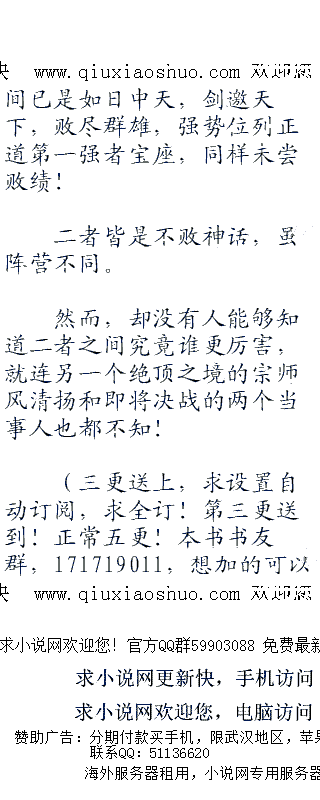 快 www.qiuxiaoshuo.com 欢迎您
间已是如日中天，剑邀天
下，败尽群雄，强势位列正
道第一强者宝座，同样未尝
败绩！
二者皆是不败神话，虽
阵营不同。
然而，却没有人能够知
道二者之间究竟谁更厉害，
就连另一个绝顶之境的宗师
风清扬和即将决战的两个当
事人也都不知！
（三更送上，求设置自
动订阅，求全订！第三更送
到！正常五更！本书书友
群，171719011，想加的可以
快 www.qiuxiaoshuo.com 欢迎您
求小说网欢迎您！官方QQ群59903088 免费最新
求小说网更新快，手机访问
求小说网欢迎您，电脑访问
赞助广告：分期付款买手机，限武汉地区，苹果
联系QQ：51136620
海外服务器租用，小说网专用服务器